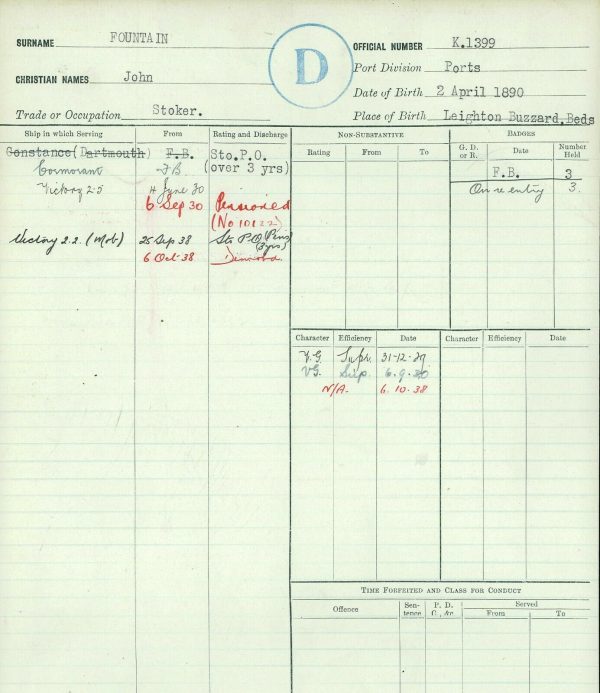 SURNAME FOUNTAIN
D
OFFICIAL NUMBER K.1399
CHRISTIAN NAMES John
Port Division Ports
Date of Birth 2 April 1890
Trade or Occupation Stoker.
Place of Birth Leighton Buzzard, Beds
Ship in which Serving From Rating and Discharge
NON-SUBSTANTIVE
BADGES
Rating From To
G. D. or R. Date Number Held
Constance (Dartmouth) F.B. Sto. P.O.
(over 3 yrs)
Cormorant F.B.
Victory 25 4 June 30
6 Sep 30 Pensioned
(No 10122)
Victory 2.2. (Mob) 25 Sep 38 Sto P.O. (Pens)
(3 yrs)
6 Oct 38
F.B. 3
On re entry 3.
Character Efficiency Date Character Efficiency Date
V.G. Supr. 31-12-29
VG. Sup. 6.9.30
N/A. 6.10.38
TIME FORFEITED AND CLASS FOR CONDUCT
Offence Sentence P. D. C., &c Served
From To